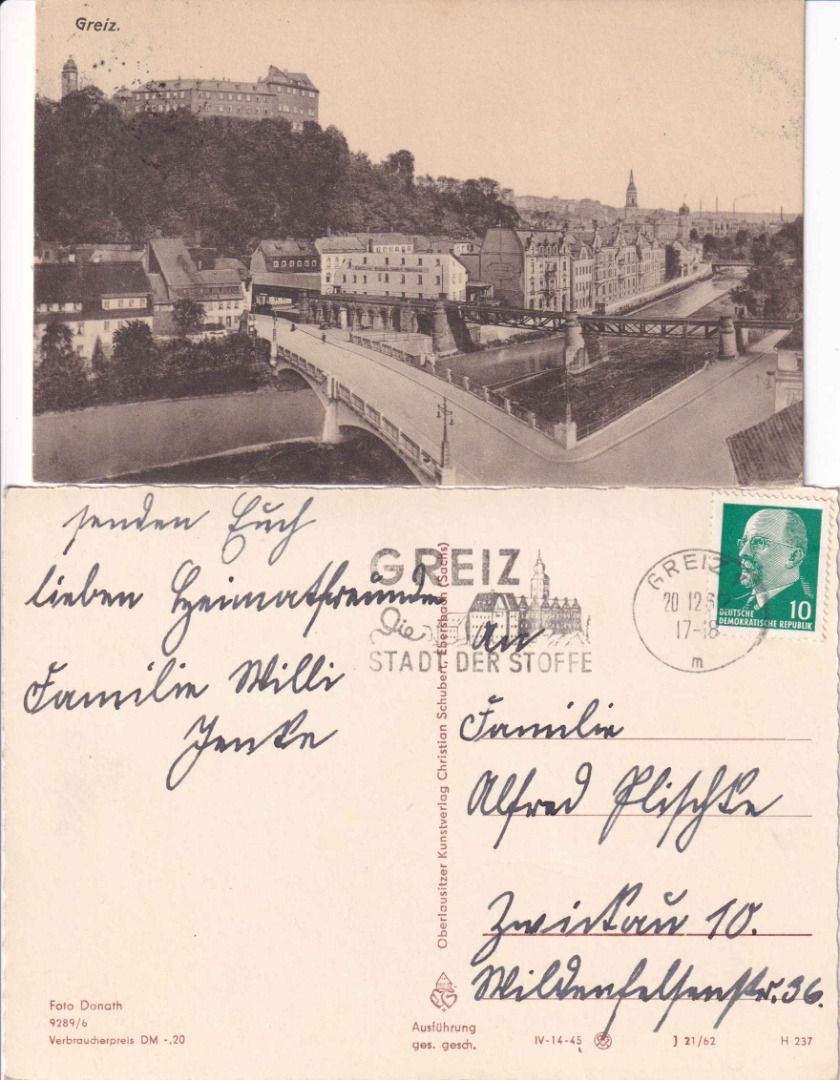 Greiz.
senden Euch
lieben Heimatfreunde
Familie Willi
Jenke
GREIZ
Die
STADT DER STOFFE
GREIZ
20 12 6
17-18
m
10
DEUTSCHE
DEMOKRATISCHE REPUBLIK
An
Familie
Alfred Plischke
Zwickau 10.
Wildenfelsenstr. 36.
Oberlausitzer Kunstverlag Christian Schubert, Ebersbach (Sachs)
Foto Donath
9289/6
Verbraucherpreis DM -,20
Ausführung
ges. gesch.
IV-14-45
J 21/62
H 237